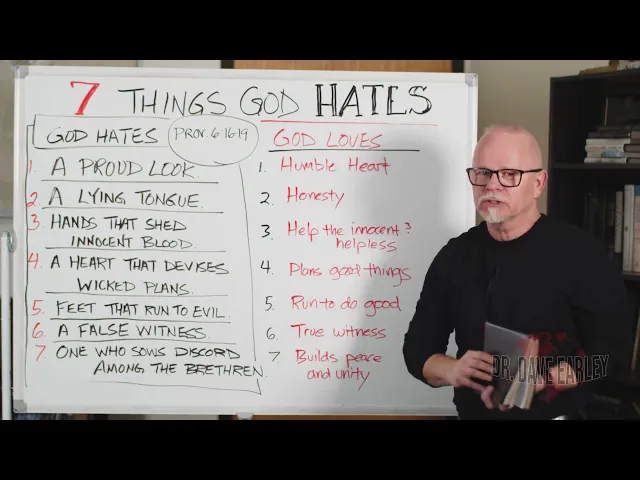 7 THINGS GOD HATES
GOD HATES
PROV. 6:16-19
1. A PROUD LOOK.
2. A LYING TONGUE.
3. HANDS THAT SHED
INNOCENT BLOOD.
4. A HEART THAT DEVISES
WICKED PLANS.
5. FEET THAT RUN TO EVIL.
6. A FALSE WITNESS.
7. ONE WHO SOWS DISCORD
AMONG THE BRETHREN.
GOD LOVES
1. Humble Heart
2. Honesty
3. Help the innocent &
helpless
4. Plans good things
5. Run to do good
6. True witness
7. Builds peace
and unity
DR. DAVE EARLEY